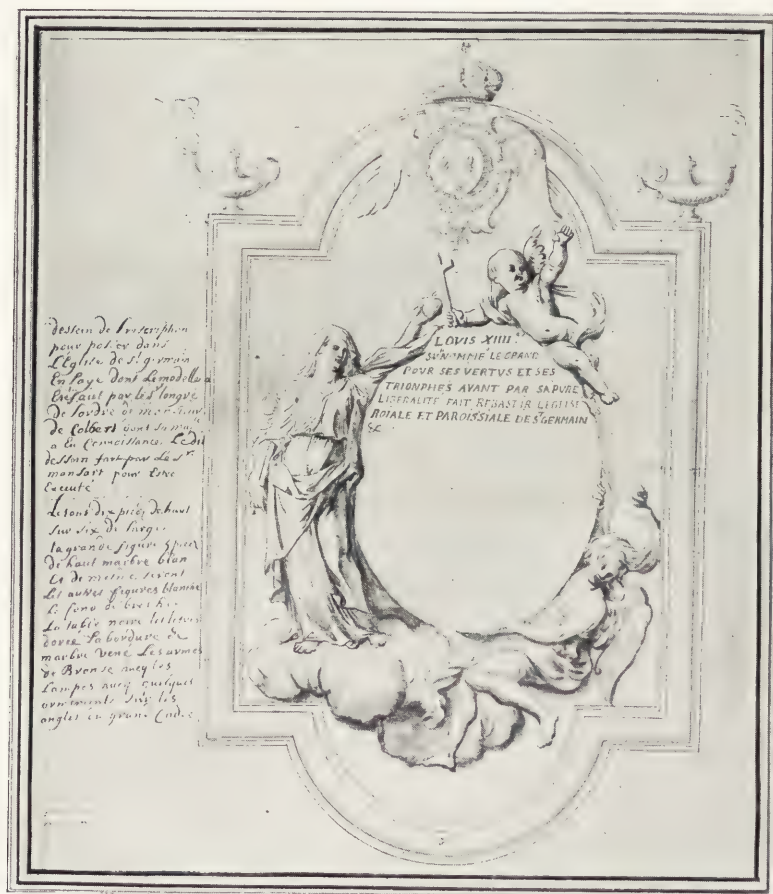 dessein de linscription
pour poser dans
LEglise de st germain
En Laye dont Le modelle a
Este fait par les ordres
de Colbert dont sa ma.te
a Eu Connoissance. Ledit
dessain fait par Le Sr.
mansart pour Estre
Executé
dix piez de haut
sur six de large
la grande figure 5 piez
de haut marbre blan
et de meme seront
Les autres figures blanche
Le fond de breche
La table noire les letres
dorée La bordure de
marbre vené Les armes
de Bronse avec les
Lampes avec quelques
ornements sur les
angles
LOUIS XIIII.
SURNOMMÉ LE GRAND
POUR SES VERTUS ET SES
TRIONPHES AYANT PAR SA PURE
LIBERALITE FAIT REBASTIR LEGLISE
ROIALE ET PAROISSIALE DE ST GERMAIN
&c